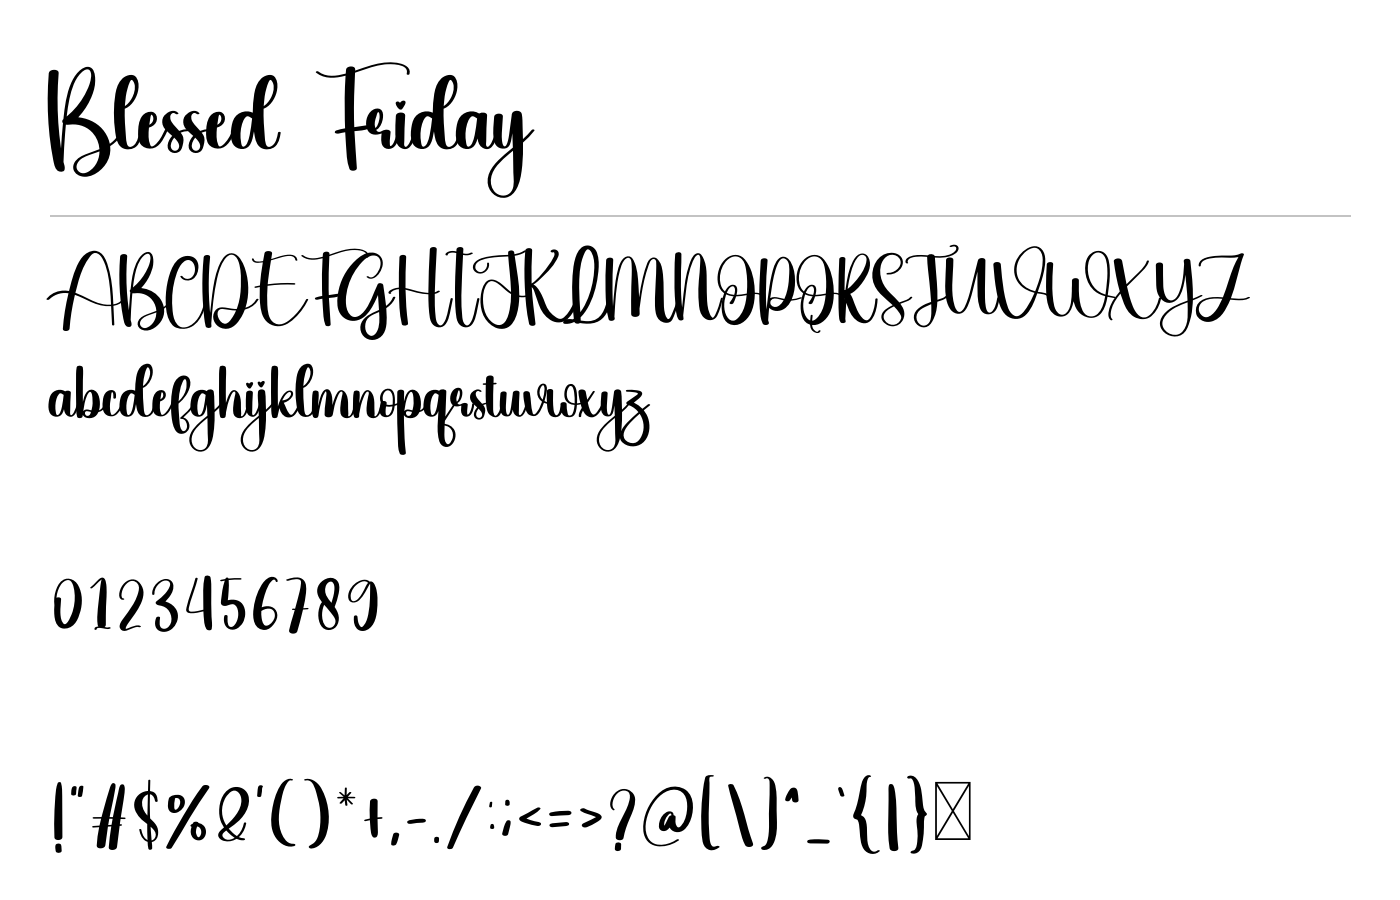 Blessed Friday
ABCDEFGHIJKLMNOPQRSTUVWXYZ
abcdefghijklmnopqrstuvwxyz
0123456789
!"#$%&'()*+,-./:;<=>?@[\]^_`{|}